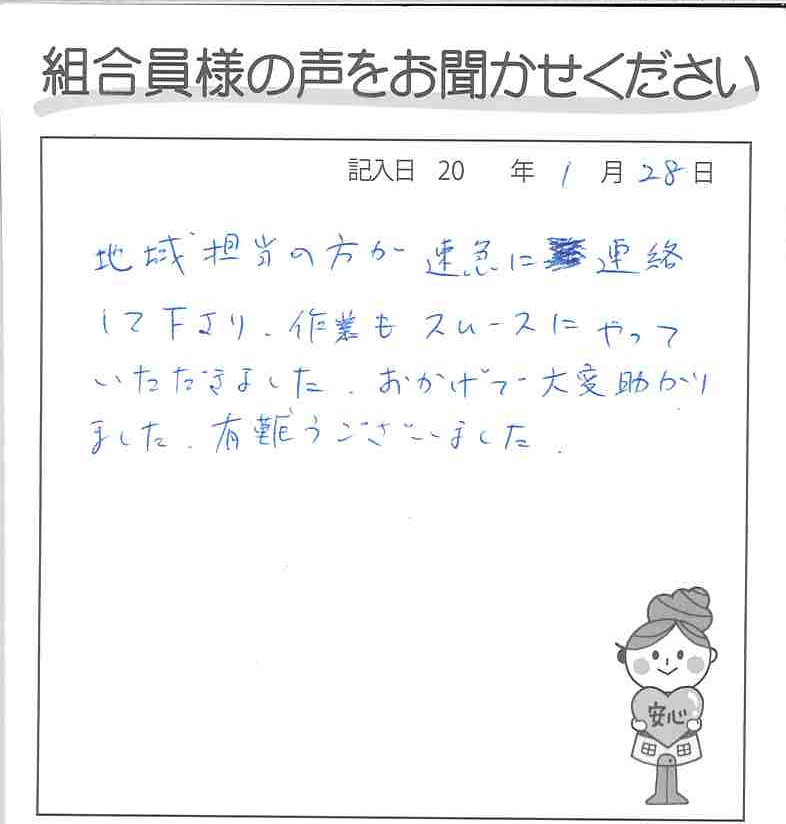 組合員様の声をお聞かせください
記入日 20 年 1 月 28 日
地域担当の方が 速急に 連絡
して下さり、作業も スムースに やって
いただきました。おかげで 大変助かり
ました。有難うございました。
安心